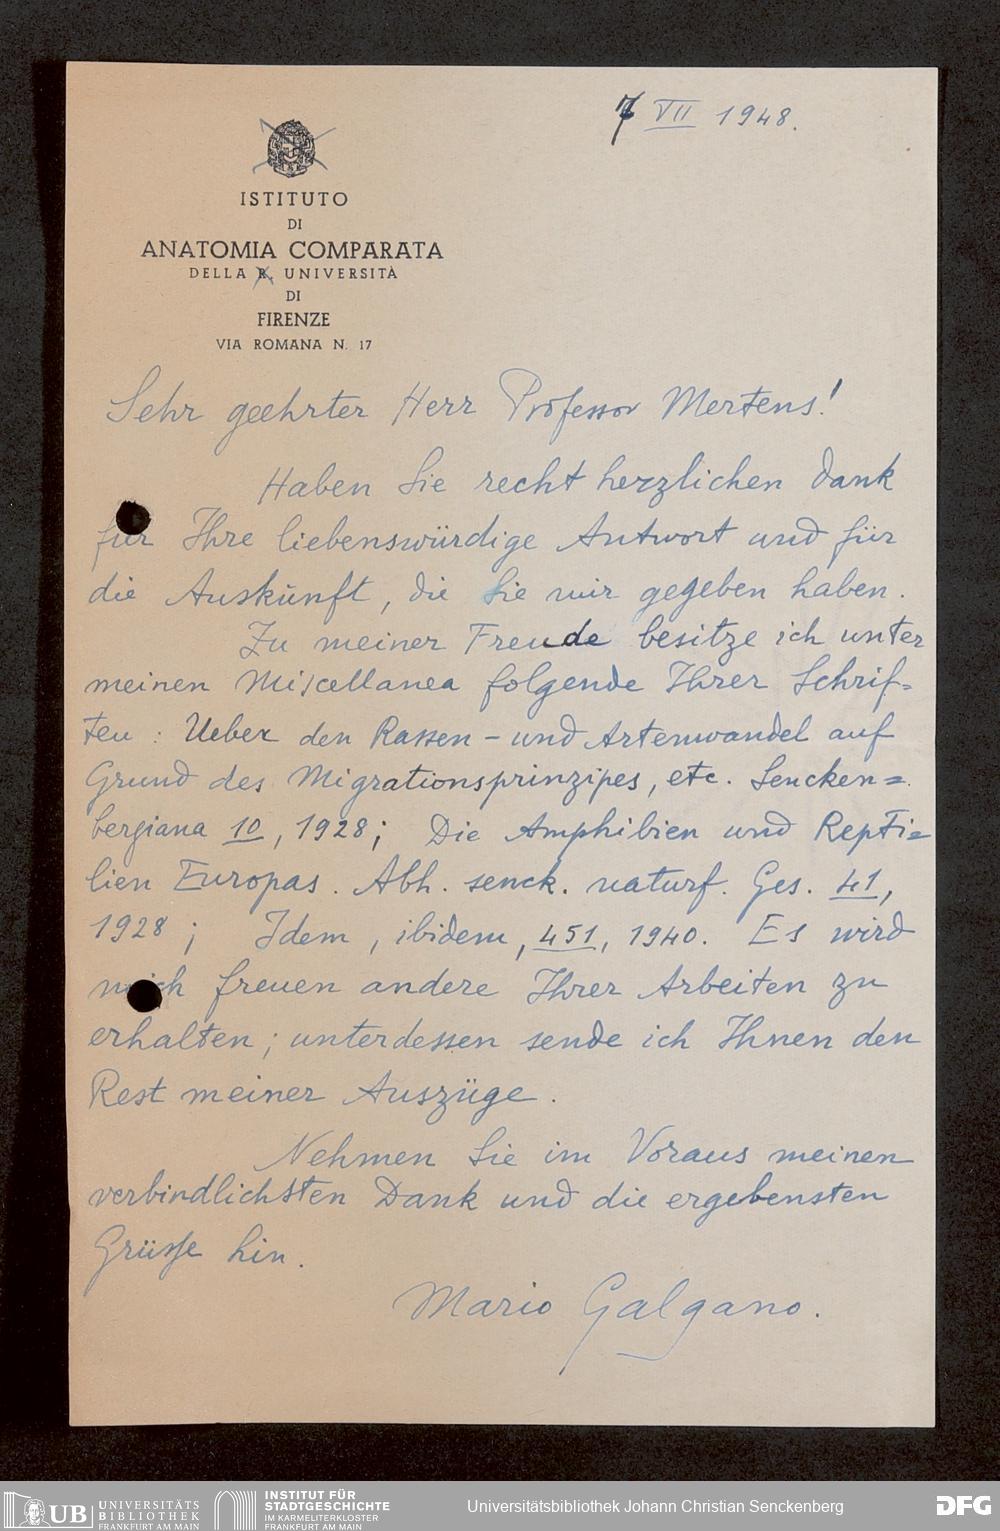 7 VII 1948.
ISTITUTO
DI
ANATOMIA COMPARATA
DELLA R. UNIVERSITÀ
DI
FIRENZE
VIA ROMANA N. 17
Sehr geehrter Herr Professor Mertens!
Haben Sie recht herzlichen Dank
für Ihre liebenswürdige Antwort und für
die Auskünft, die Sie mir gegeben haben.
Zu meiner Freude besitze ich unter
meinen Miscellanea folgende Ihrer Schrif-
ten: Ueber den Rassen - und Artenwandel auf
Grund des Migrationsprinzipes, etc. Sencken=
bergiana 10, 1928; Die Amphibien und Repti=
lien Europas. Abh. senck. naturf. Ges. 41,
1928; Idem, ibidem, 451, 1940. Es wird
mich freuen andere Ihrer Arbeiten zu
erhalten; unterdessen sende ich Ihnen den
Rest meiner Auszüge.
Nehmen Sie im Voraus meinen
verbindlichsten Dank und die ergebensten
Grüsse hin.
Mario Galgano.
UB UNIVERSITÄTS
BIBLIOTHEK
FRANKFURT AM MAIN
INSTITUT FÜR
STADTGESCHICHTE
IM KARMELITERKLOSTER
FRANKFURT AM MAIN
Universitätsbibliothek Johann Christian Senckenberg
DFG